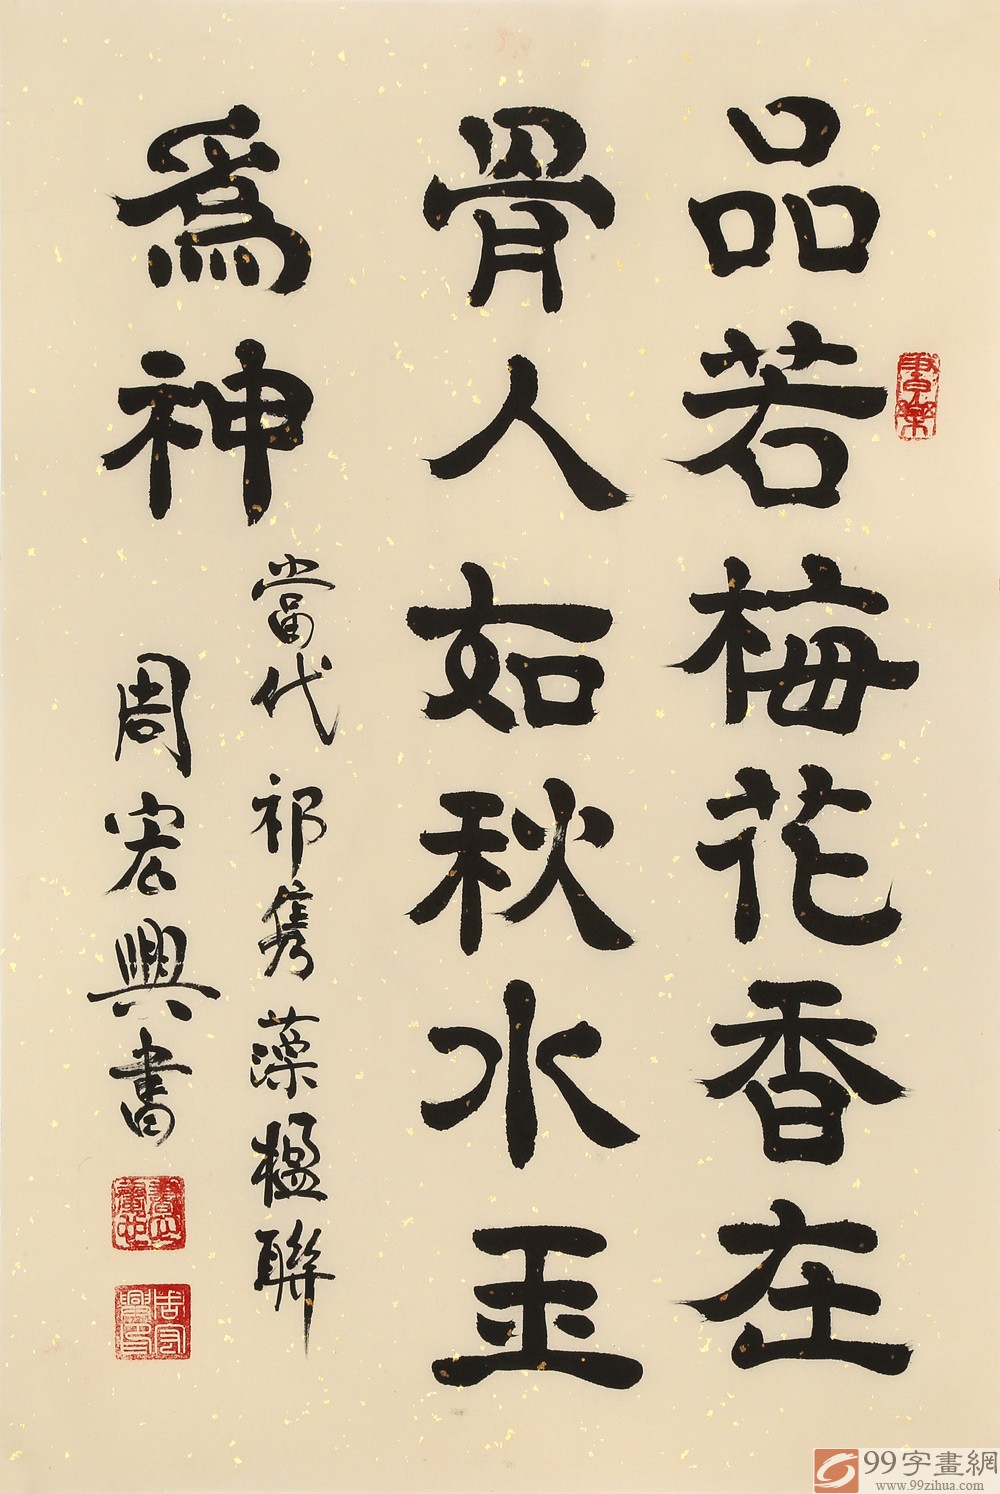 品若梅花香在
骨人如秋水玉
爲神
當代祁雋藻楹聯
周宏興書
99字畫網
www.99zihua.com